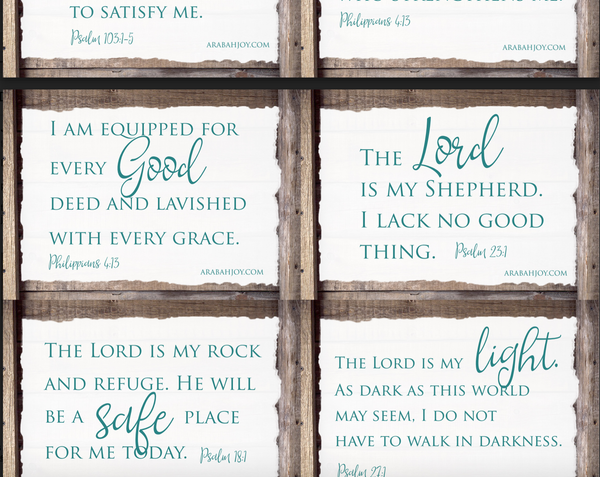 TO SATISFY ME.
Psalm 103:1-5
ARABAHJOY.COM
Philippians 4:13
ARABAHJOY.COM
I AM EQUIPPED FOR
EVERY Good
DEED AND LAVISHED
WITH EVERY GRACE.
Philippians 4:13
ARABAHJOY.COM
THE Lord
IS MY SHEPHERD.
I LACK NO GOOD
THING. Psalm 23:1
ARABAHJOY.COM
THE LORD IS MY ROCK
AND REFUGE. HE WILL
BE A safe PLACE
FOR ME TODAY. Psalm 18:1
THE LORD IS MY light.
AS DARK AS THIS WORLD
MAY SEEM, I DO NOT
HAVE TO WALK IN DARKNESS.
Psalm 27:1